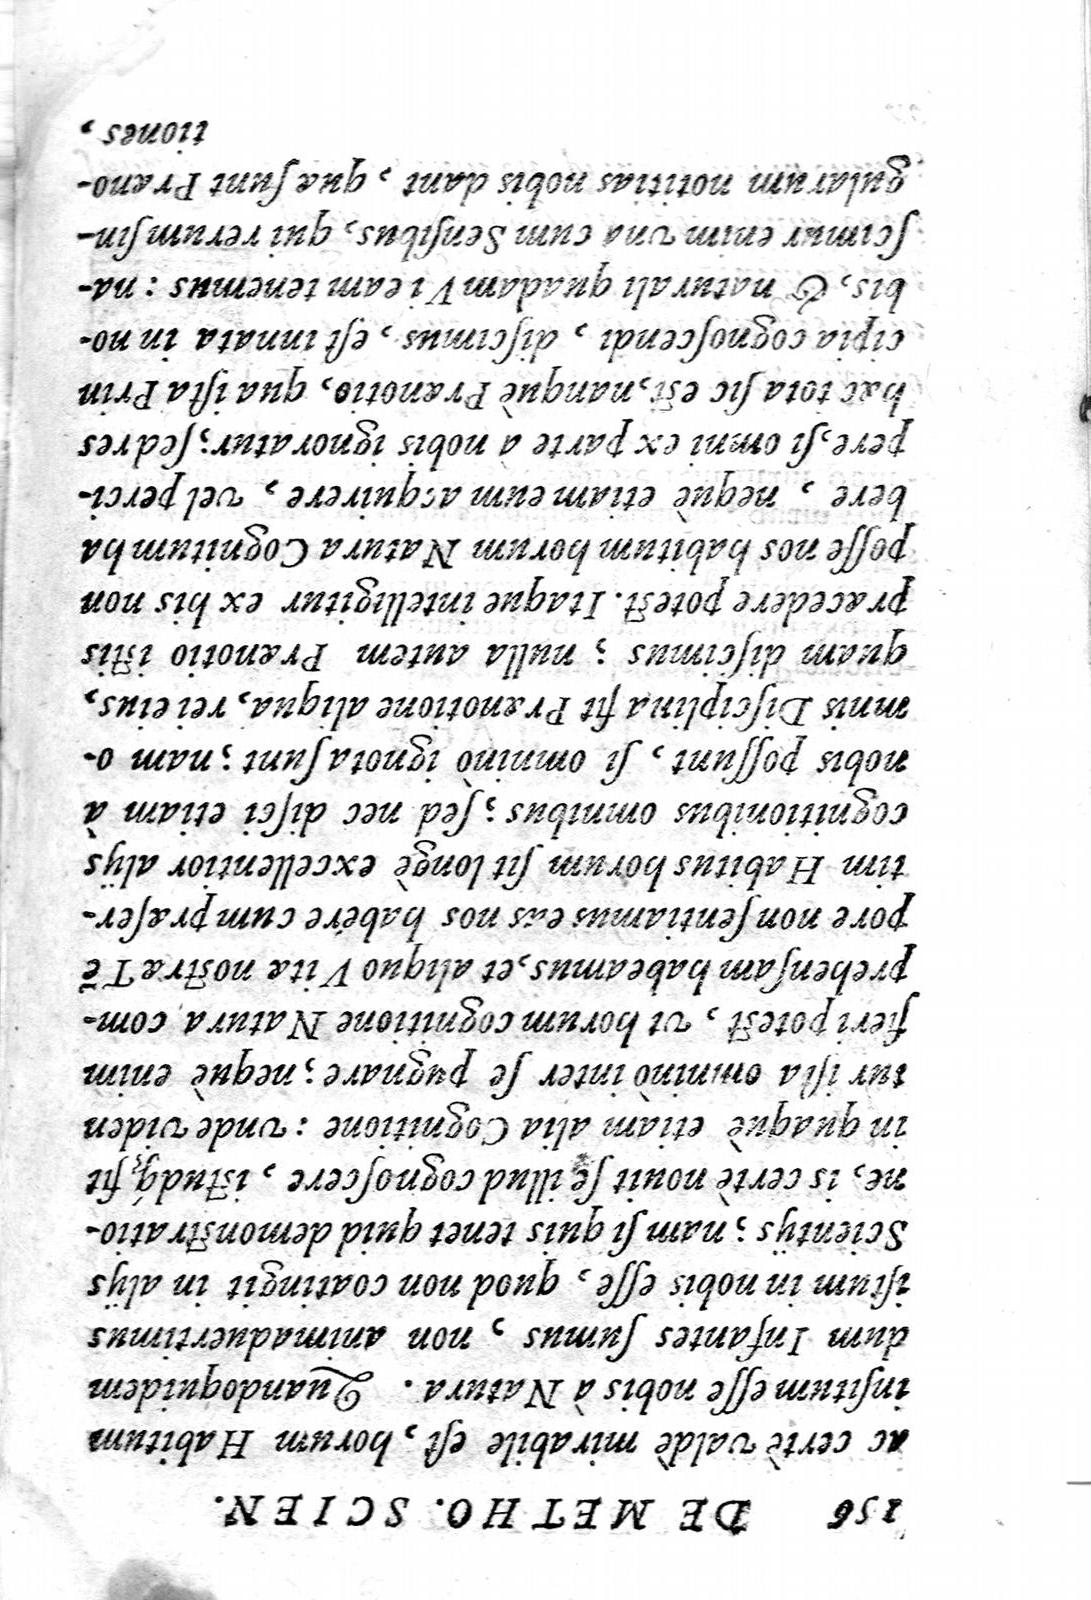 156 DE METHO. SCIEN.
ac certè valdè mirabile est, horum Habitum
insitum esse nobis à Natura. Quandoquidem
dum Infantes sumus, non animaduertimus
istum in nobis esse, quod non coatingit in alijs
Scientijs; nam si quis tenet quid demonstratio-
ne, is certè nouit se illud cognoscere, istudq́; fit
in quaquè etiàm alia Cognitione: vnde viden
tur ista omninò inter se pugnare; nequè enim
fieri potest, vt horum cognitione Natura com-
prehensam habeamus, et aliquo Vitæ nostræ Tē
pore non sentiamus eas nos habere cum præser-
tim Habitus horum sit longè excellentior alijs
cognitionibus omnibus; sed nec disci etiam à
nobis possunt, si omninò ignota sunt; nam o-
mnis Disciplina fit Prænotione aliqua, rei eius,
quam discimus; nulla autem Prænotio istis
præcedere potest. Itaque intelligitur ex his non
posse nos habitum horum Natura Cognitum ha
bere, nequè etiam eum acquirere, vel perci-
pere, si omni ex parte à nobis ignoratur; sed res
hæc tota sic est, nanquè Prænotio, qua ista Prin
cipia cognoscendi, discimus, est innata in no-
bis, & naturali quadam Vi eam tenemus: na-
scimur enim vna cum Sensibus, qui rerum sin-
gularum notitias nobis dant, quæ sunt Præno-
tiones,